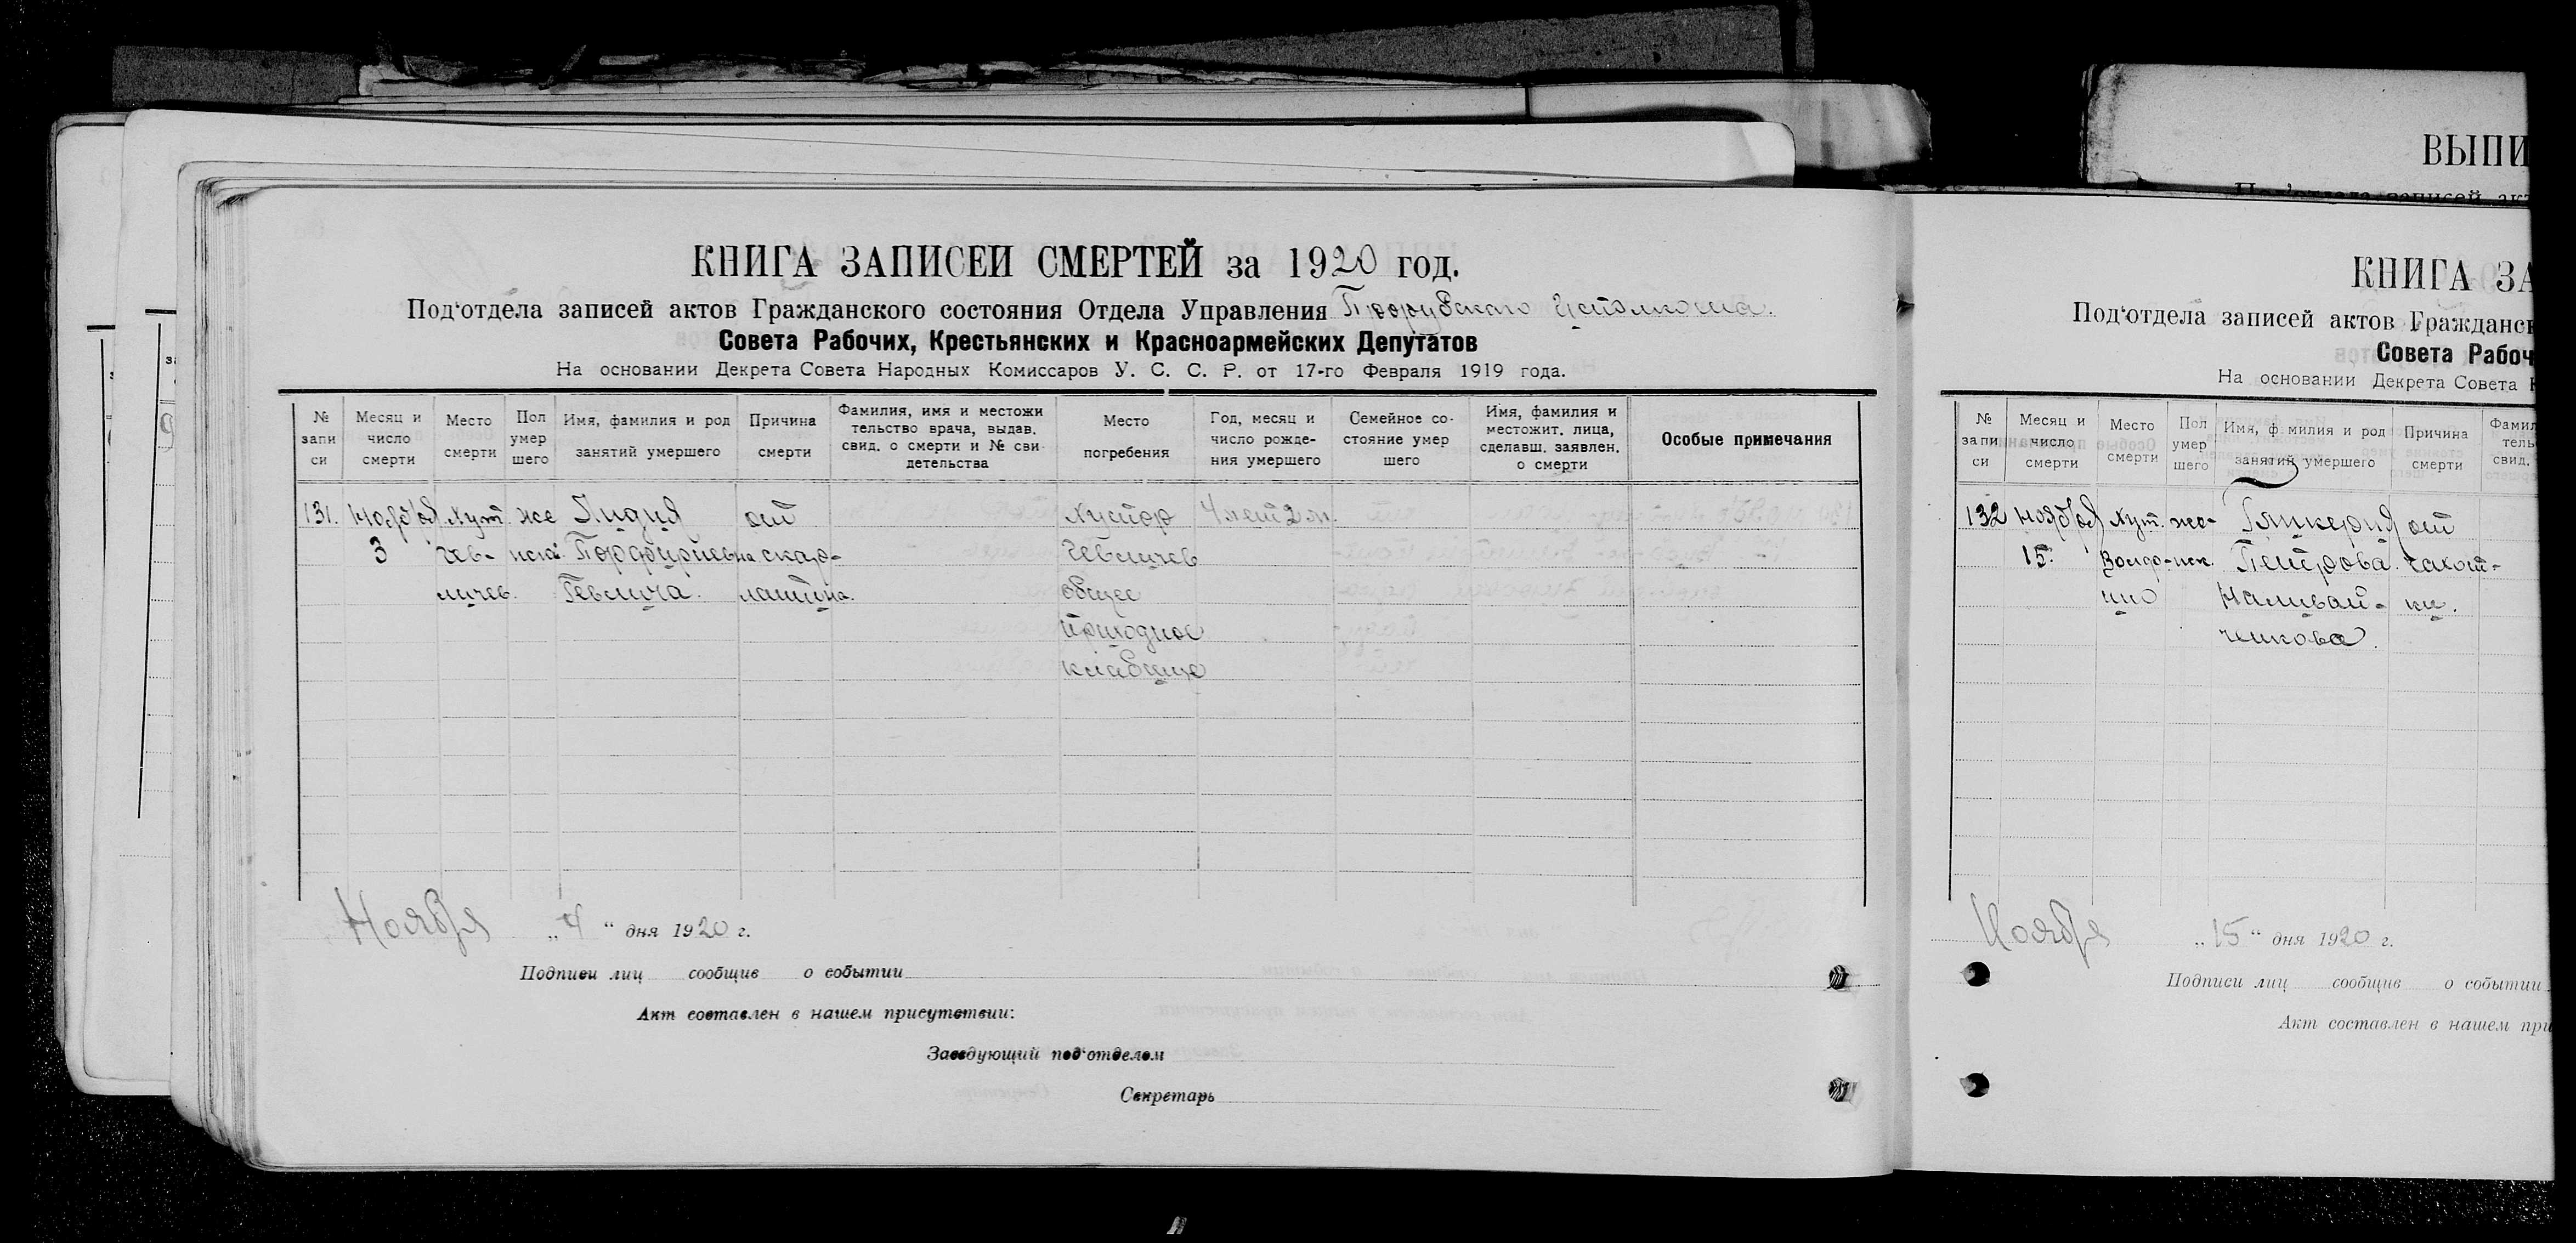 ВЫПИ
КНИГА ЗАПИСЕЙ СМЕРТЕЙ за 1920 год.
Под'отдела записей актов Гражданского состояния Отдела Управления
Совета Рабочих, Крестьянских и Красноармейских Депутатов
На основании Декрета Совета Народных Комиссаров У. С. С. Р. от 17-го Февраля 1919 года.
№ запи си
Месяц и число смерти
Место смерти
Пол умер шего
Имя, фамилия и род занятий умершего
Причина смерти
Фамилия, имя и местожи тельство врача, выдав. свид. о смерти и № сви- детельства
Место погребения
Год, месяц и число рожде- ния умершего
Семейное со- стояние умер шего
Имя, фамилия и местожит. лица, сделавш. заявлен. о смерти
Особые примечания
131. Ноября Хут. же Лидия от Хутор 4 лет 2 м.
3 Порфириевна скар-
латина. общее
приходное
кладбище
Ноября „4“ дня 1920 г.
Подписи лиц сообщив о событии
Акт составлен в нашем присутствии:
Заведующий под'отделом
Секретарь
КНИГА ЗА
Под'отдела записей актов Гражданск
Совета Рабоч
На основании Декрета Совета
№ запи си
Месяц и число смерти
Место смерти
Пол умер шего
Имя, ф милия и род занятий умершего
Причина смерти
Фамил тель свид.
132 Ноября Хут. же- Гликерия от
15. нск. Петрова чахот-
Наливай- ки.
ченкова.
Ноября „15“ дня 1920 г.
Подписи лиц сообщив о событии
Акт составлен в нашем при